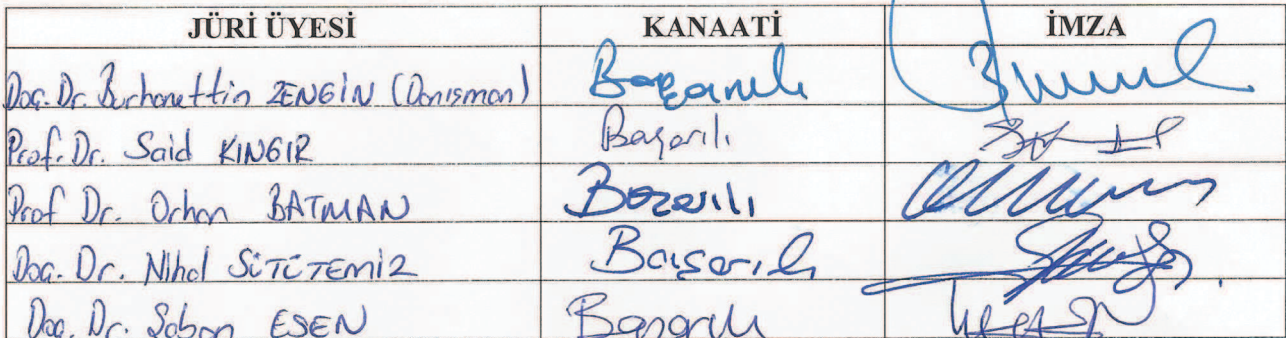 JÜRİ ÜYESİ KANAATİ İMZA
Doç. Dr. Burhanettin ZENGİN (Danışman) Başarılı
Prof. Dr. Said KINGIR Başarılı
Prof Dr. Orhan BATMAN Başarılı
Doç. Dr. Nihal SÜTÜTEMİZ Başarılı
Doç. Dr. Şaban ESEN Başarılı